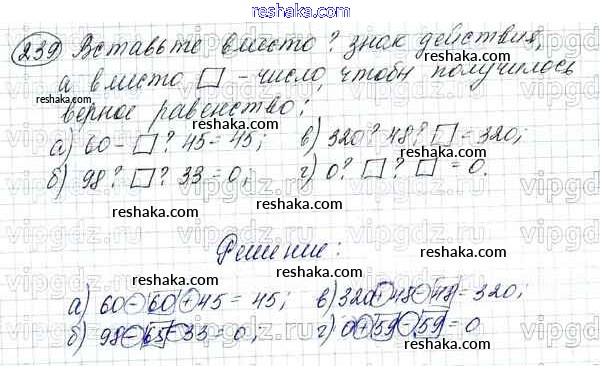 reshaka.com
239 Вставьте вместо ? знак действия,
а вместо □ - число, чтобы получилось
верное равенство:
а) 60 - □ ? 45 = 45; в) 320 ? 48 ? □ = 320;
б) 98 ? □ ? 33 = 0; г) 0 ? □ ? □ = 0.
Решение:
а) 60 - 60 + 45 = 45; в) 320 + 48 - 48 = 320;
б) 98 - 65 - 33 = 0; г) 0 + 59 - 59 = 0